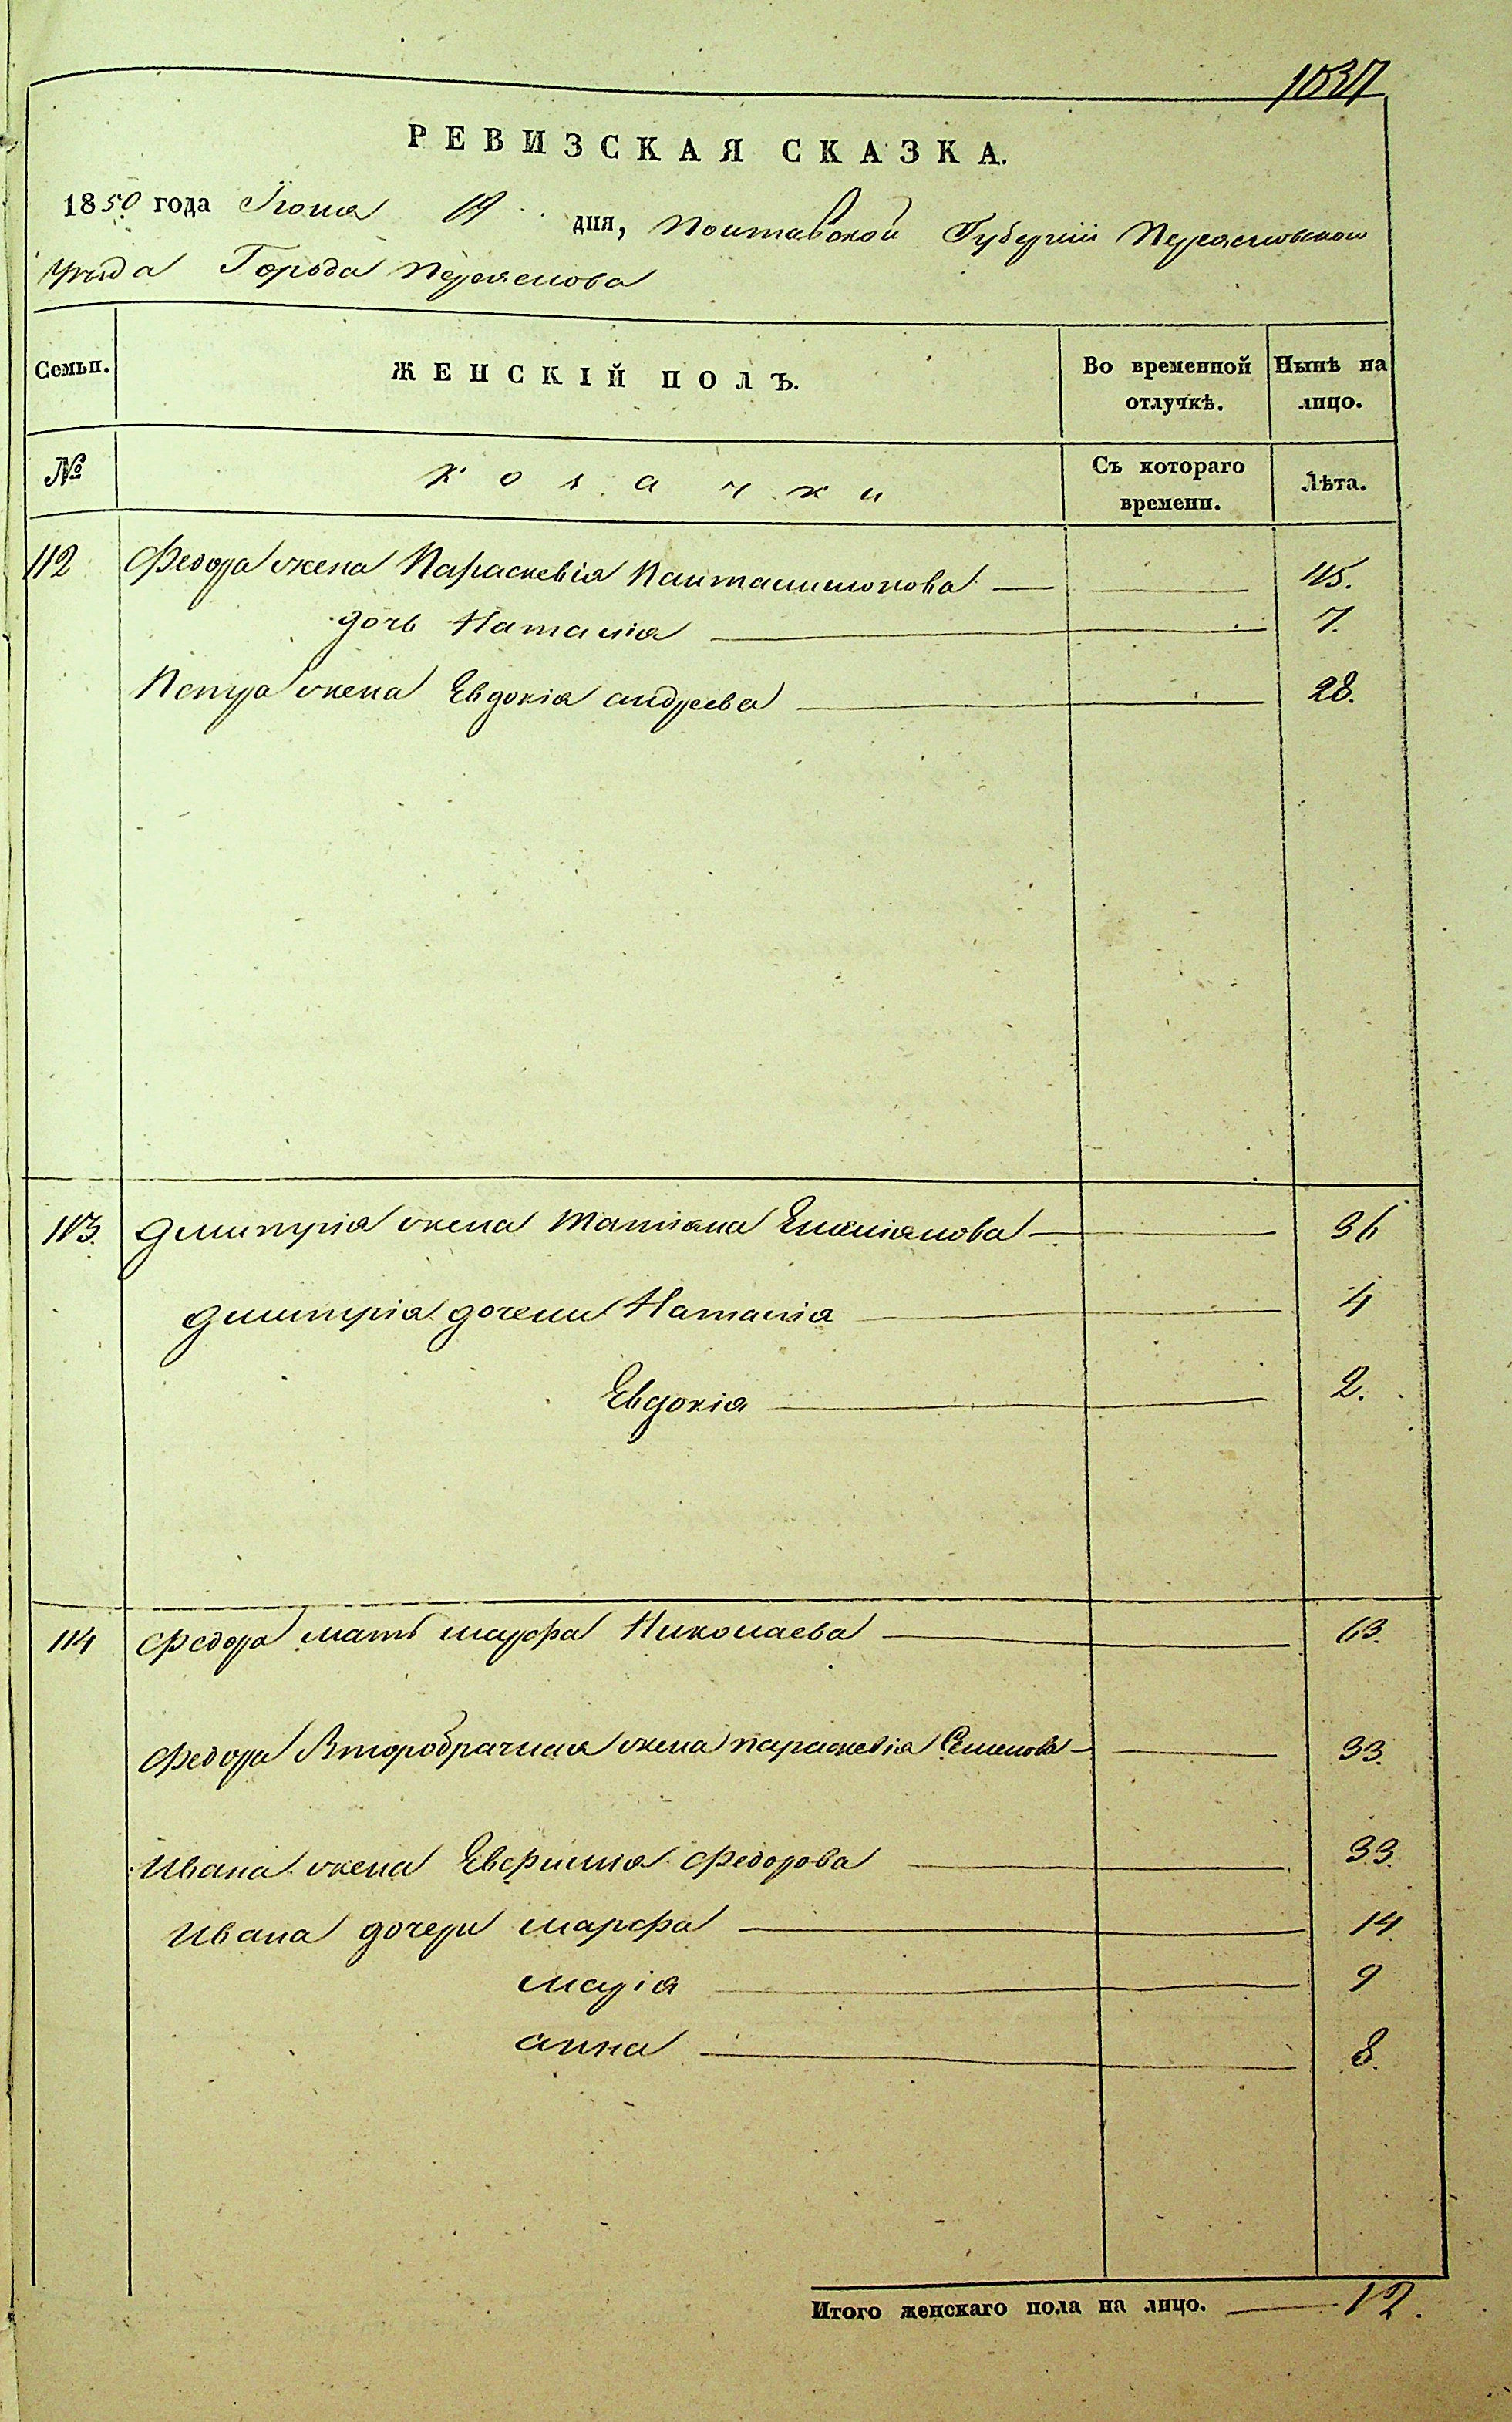 1037
РЕВИЗСКАЯ СКАЗКА.
1850 года Іюня 19 дня, Полтавской Губерніи Переяславскаго
уезда Города Переяслова
Семьи. ЖЕНСКІЙ ПОЛЪ. Во временной отлучкѣ. Нынѣ на лицо.
№ Козачки Съ котораго времени. Лѣта.
112 Федора жена Параскевія Панталимонова 45.
дочь Наталія 7.
Петра жена Евдокія андреева 28.
113. Димитрія жена Татіана Емеліанова 36
Димитрія дочери Наталія 4
Евдокія 2.
114 Федора мать марфа Николаева 63.
Федора Второбрачная жена параскевія Семенова 33.
Ивана жена Евфимія Федорова 33.
Ивана дочери марфа 14.
марія 9
анна 8.
Итого женскаго пола на лицо. 12.